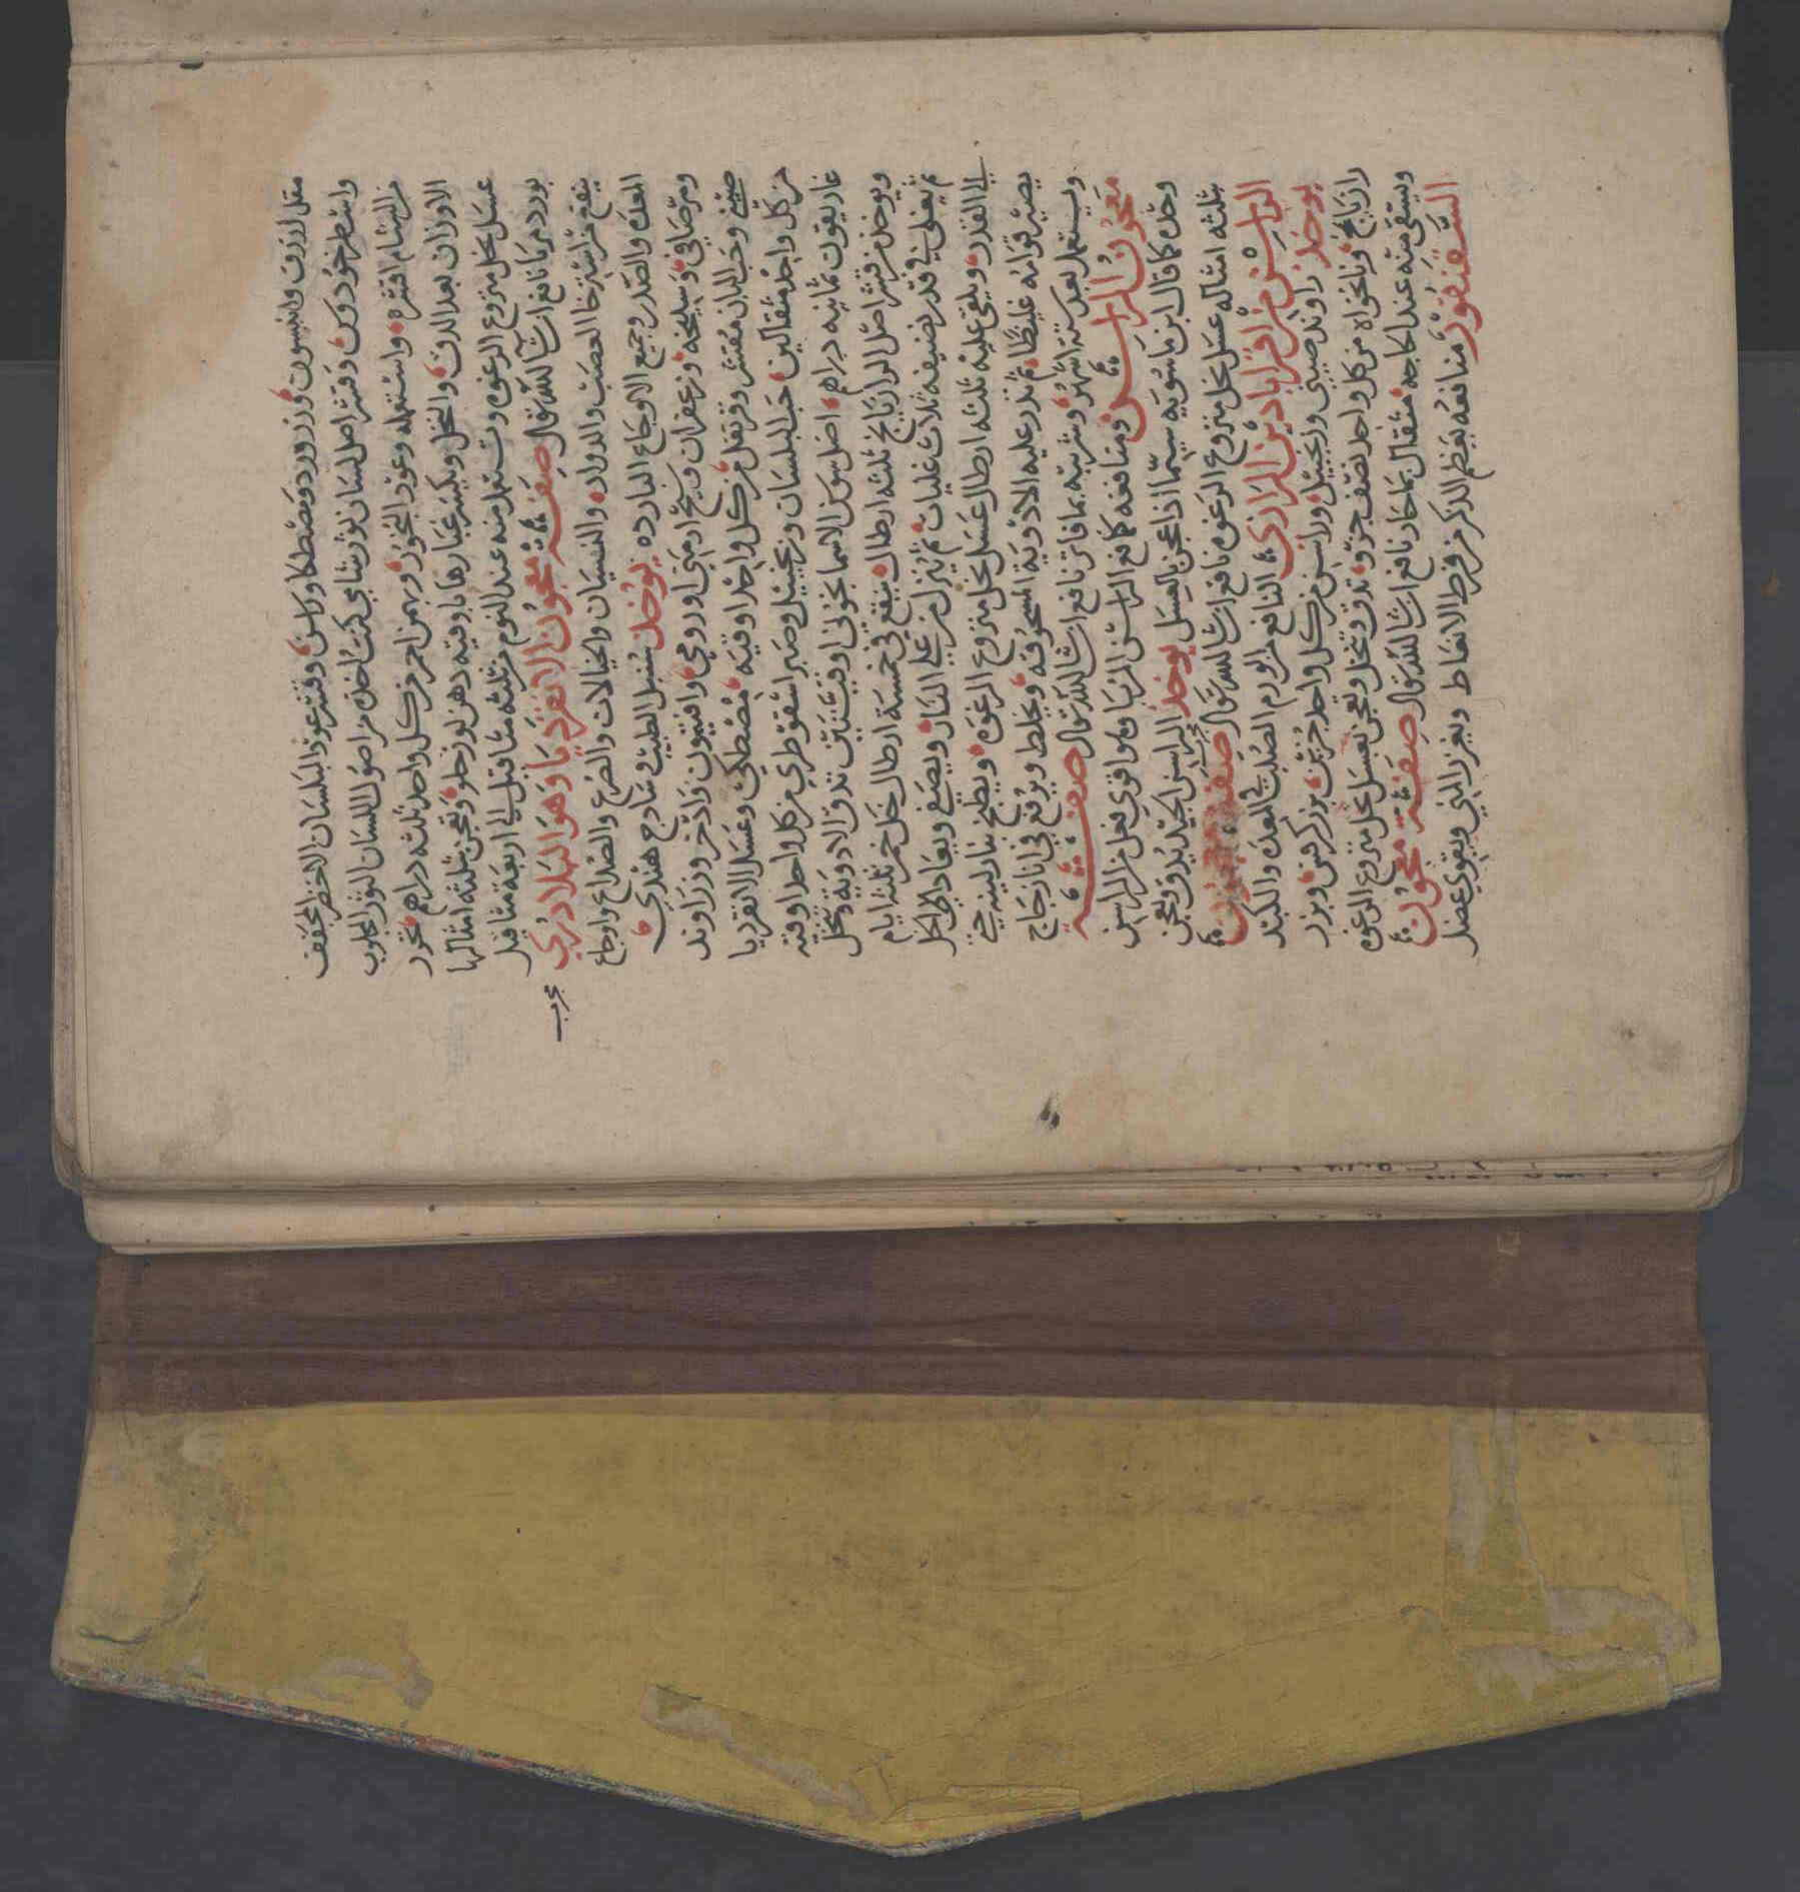 مقل ازرق وانيسون وزر ورد ومصطكا وكاسن وقشر عود البلسان الاخضر المجفف
واسطوخودوس وقشر اصل لسان ثور شامي كنت اخذه من اصول اللسان الثور المجلوب
من الشام اقشره واستعمله وعود البخور وبهمن احمر من كل واحد ثلثه دراهم تحرر
الاوزان بعد الدق والنخل ويكسر غبارها باوقيه دهن لوز حلو وتعجن بثلثه امثالها
عسل نحل منزوع الرغوه وتستعمل منه عند النوم من ثلثه مثاقيل الى اربعة مثاقيل
بورد مربا نافع ان شا الله تعالى صفة معجون الانقرديا وهو البلادري
مجرب
ينفع من استرخا العصب والدوار والنسيان والخيالات والصرع والصداع واوجاع
المعده والصدر وجميع الاوجاع البارده يوخذ سنبل الطيب وسادج هندي
ومر صافي وسليخه وزعفران وشيح ارمني او رومي وافتيمون واذخر وزراوند
صيني وحب البان مقشر وقرنفل من كل واحد اوقيه مصطكي وعسل الانقرديا
من كل واحد مثقالين حب البلسان وزنجبيل وصبر اسقوطري من كل واحد اوقيه
غاريقون ثمانيه دراهم اصل سوسن الاسمانجوني اوقيتين تدق الادويه وتنخل
ويوخذ من قشر اصل الرازيانج ثلثه ارطال ينقع في خمسة ارطال خل خمر ثلثه ايام
ثم تغلي في قدر نضيفه ثلاث غليات ثم ينزل من على النار ويصفى ويعاد الخل
الى القدر ويلقى عليه ثلثه ارطال عسل نحل منزوع الرغوه ويطبخ بنار لينه حتى
يصير قوامه غليظا ثم تذر عليه الادويه المسحوقه ويخلط ويرفع في انا زجاج
ويستعمل بعد ستة اشهر وشربته بما فاتر نافع ان شا الله تعالى صفة
معجون الراسن ومنافعه كمنافع الراسن المربا وهو اقوى فعل من الراسن
وحده كما قال ابن ماسويه سيما اذا عجن بالعسل يوخذ الراسن الجيد يدق ويعجن
بثلثه امثاله عسل نحل منزوع الرغوه نافع ان شا الله تعالى صفة معجون
الراسن من اقراباذين الرازي النافع من الورم الصلب في المعده والكبد
يوخذ راوند صيني وزنجبيل وراسن من كل واحد جزين بزر كرفس وبزر
رازيانج ونانخواه من كل واحد نصف جزو تدق وتنخل ويعجن بعسل نحل منزوع الرغوه
ويسقى منه عند الحاجه مثقال بما حار نافع ان شا الله تعالى صفة معجون
السقنقور منافعه يعظم الذكر من فرط الانعاظ ويغزر المني ويقوي عضل